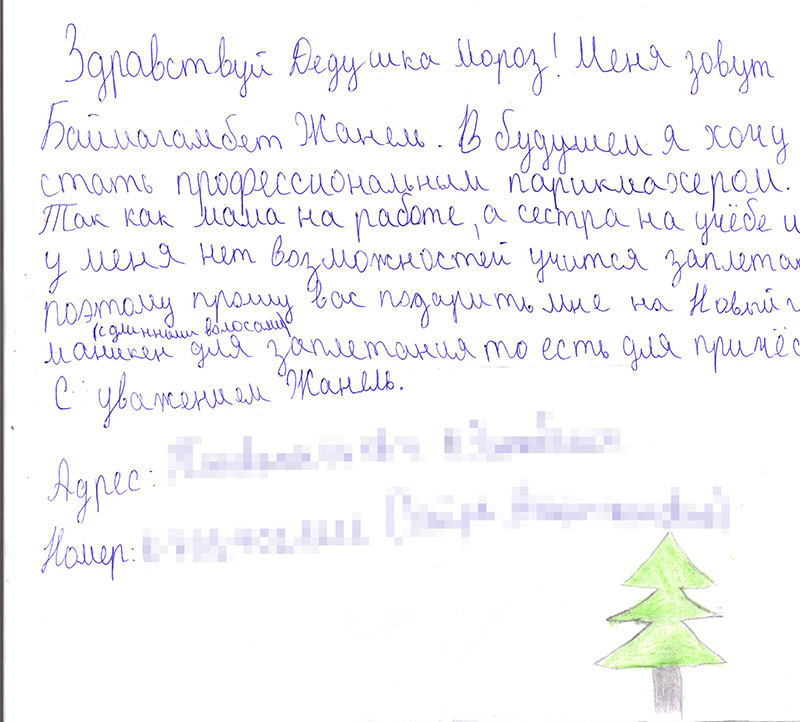 Здравствуй Дедушка Мороз! Меня зовут
Баймагамбет Жанель. В будушем я хочу
стать профессиональным парикмахером.
Так как мама на работе, а сестра на учёбе и
у меня нет возможностей учится заплета
поэтому прошу вас подарить мне на Новый г
(с длинными волосами)
маникен для заплетания то есть для причёс
С уважением Жанель.
Адрес:
Номер: